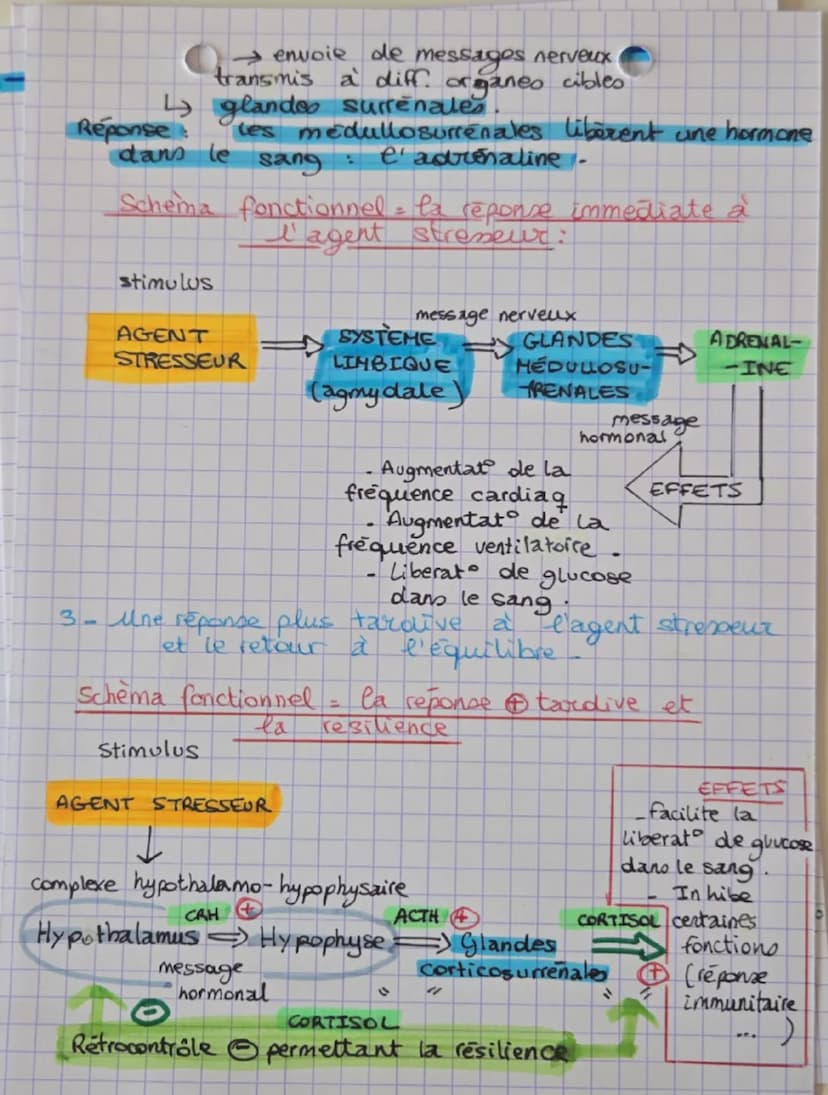 → envoie de messages nerveux
transmis à diff. organes cibles
↳ glandes surrénales.
Réponse : Les médullosurrénales libèrent une hormone
dans le sang : l'adrénaline.
Schéma fonctionnel = la réponse immédiate à
l'agent stresseur :
stimulus
message nerveux
AGENT STRESSEUR ⇒ SYSTÈME LIMBIQUE (agmydale) ⇒ GLANDES MÉDULLOSU-RRENALES ⇒ ADRENAL-INE
message
hormonal
EFFETS
- Augmentat° de la
fréquence cardiaq
- Augmentat° de la
fréquence ventilatoire.
- Liberat° de glucose
dans le sang.
3- Une réponse plus tardive à l'agent stresseur
et le retour à l'équilibre -
Schéma fonctionnel = la réponse ⊕ tardive et
la resilience
Stimulus
AGENT STRESSEUR
↓
complexe hypothalamo-hypophysaire
CRH ⊕ ACTH ⊕ CORTISOL
Hypothalamus ⇒ Hypophyse ⇒ Glandes
corticosurrénales ⊕
message
hormonal " " " "
⊖ CORTISOL
Rétrocontrôle ⊖ permettant la résilience
EFFETS
- facilite la
liberat° de glucose
dans le sang.
- Inhibe
certaines
fonctions
(réponse
immunitaire
...)